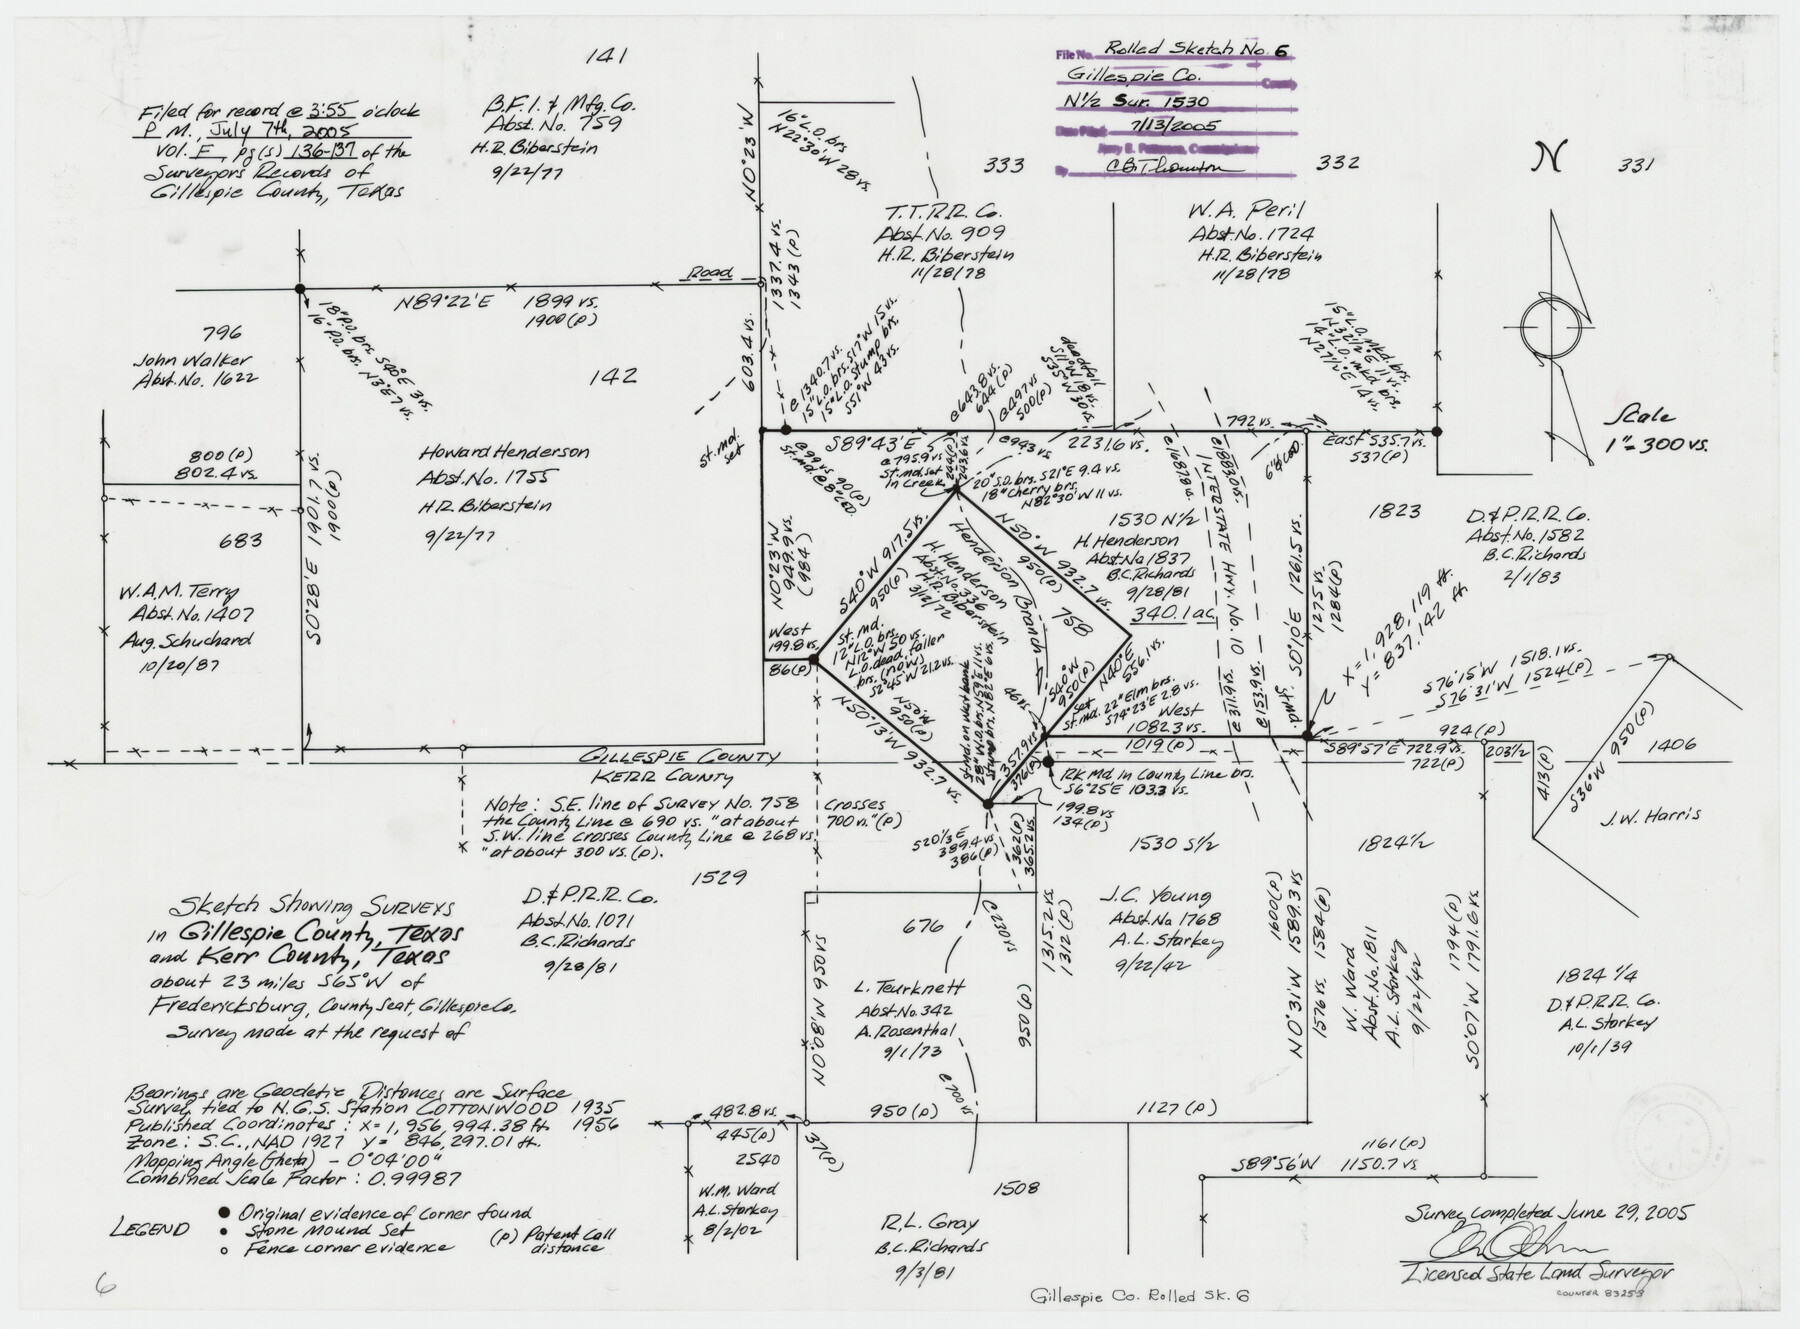 141
Filed for record @ 3:55 o'clock
P M., July 7th, 2005
Vol. F, pg(s) 136-137 of the
Surveyors Records of
Gillespie County, Texas
B.F.I. & Mfg. Co.
Abst. No. 759
H.R. Biberstein
9/22/77
File No. Rolled Sketch No. 6
Gillespie Co. County
N 1/2 Sur. 1530
Date Filed: 7/13/2005
Jerry E. Patterson, Commissioner
By CBThomton
333
332
N
331
T.T.R.R. Co.
Abst. No. 909
H.R. Biberstein
11/28/78
W.A. Peril
Abst. No. 1724
H.R. Biberstein
11/28/78
N0°23'W
16" L.O. brs
N22°30'W 28 vs.
1337.4 vs.
1343 (P)
603.4 vs.
Road
N89°22'E 1899 vs.
1900(P)
18" P.O. brs. S40°E 3 vs.
16" P.O. brs. N3°E 7 vs.
796
John Walker
Abst. No. 1622
142
800(P)
802.4 vs.
S0°28'E 1901.7 vs.
1900(P)
Howard Henderson
Abst. No. 1755
H.R. Biberstein
9/22/77
683
W.A.M. Terry
Abst. No. 1407
Aug. Schuchard
10/20/87
st. md.
set
@ 1340.7 vs.
15" L.O. brs. S17°W 15 vs.
15" L.O. Stump brs.
S51°W 43 vs.
@ 99 vs 90(P)
St. md. @ 8" C.E.D.
@ 643.8 vs.
644(P)
@ 497 vs
500(P)
deadfall
S11°W 18 vs.
S35°W 30 vs.
S89°43'E
@ 943 vs
2231.6 vs.
792 vs.
@ 795.9 vs
St. md. set
In Creek
244(P)
243.6 vs
20" S.O. brs. S21°E 9.4 vs.
18" Cherry brs.
N82°30'W 11 vs.
@ 1687.9 vs.
@ 1883.0 vs.
INTERSTATE HWY. No. 10
6" CED
15" L.O. Mkd. brs.
N32 1/2°E 11 vs.
14" L.O. mkd brs.
N27 1/2°E 14 vs.
East 535.7 vs.
537(P)
Scale
1"= 300 vs.
1823
D. & P.R.R. Co.
Abst. No. 1582
B.C. Richards
2/1/83
1530 N 1/2
H. Henderson
Abst. No 1837
B.C. Richards
9/28/81
340.1 ac.
S0°10'E 1261.5 vs.
1275 vs.
1284(P)
X=1,928,119 ft.
Y= 837,142 ft
N0°23'W
949.9 vs.
(984)
S40°W 917.5 vs.
950(P)
H. Henderson
Abst. No. 336
H.R. Biberstein
3/2/72
Henderson Branch
N50°W 932.7 vs.
950(P)
758
West
199.8 vs.
86(P)
St. md.
12" L.O. brs.
N12°W 50 vs.
L.O. dead, faller
brs. (now)
S2°45'W 21.2 vs.
N50°W
950(P)
N50°13'W 932.7 vs.
St. md. on west bank
28" W.O. brs. N59°E 11 vs.
Stump brs. N82°E 6 vs.
46 vs
S40°W
950(P)
N40°E
556.1 vs.
set
St. md. 22" Elm brs.
S74°23'E 2.8 vs.
West
1082.3 vs.
1019(P)
@ 311.9 vs.
@ 153.9 vs.
St. md.
357.9 vs
376(P)
S76°15'W 1518.1 vs.
S76°31'W 1524(P)
924(P)
S89°57'E 722.9 vs.
722(P)
203 1/2
413(P)
S36°W 950(P)
1406
J.W. Harris
GILLESPIE COUNTY
KERR COUNTY
RK Md In County Line brs.
S6°25'E 103.3 vs.
199.8 vs
134(P)
Note: S.E. line of Survey No. 758 Crosses
the County Line @ 690 vs. "at about 700 vs."(P)
S.W. line crosses County Line @ 268 vs.
"at about 300 vs. (P).
S20 1/3 E
389.4 vs
386(P)
362(P)
365.2 vs.
1530 S 1/2
1824 1/2
1529
D. & P.R.R. Co.
Abst. No. 1071
B.C. Richards
9/28/81
Sketch Showing Surveys
in Gillespie County, Texas
and Kerr County, Texas
about 23 miles S65°W of
Fredericksburg, County Seat, Gillespie Co.
Survey made at the request of
676
@ 220 vs
L. Teurknett
Abst. No. 342
A. Rosenthal
9/1/73
N0°08'W 950 vs
@ 700 vs.
950(P)
1315.2 vs.
1312(P)
J.C. Young
Abst. No 1768
A.L. Starkey
9/22/42
1600(P)
N0°31'W 1589.3 vs
1576 vs. 1584(P)
W. Ward
Abst. No. 1811
A.L. Starkey
9/22/42
S0°07'W 1791.6 vs.
1794(P)
1824 1/4
D&P.R.R. Co.
A.L. Starkey
10/1/39
Bearings are Geodetic Distances are Surface
Survey tied to N.G.S. Station COTTONWOOD 1935
Published Coordinates: X= 1,956,994.38 ft. 1956
Zone: S.C., NAD 1927 Y= 846,297.01 ft.
Mapping Angle (theta) - 0°04'00"
Combined Scale Factor: 0.99987
482.8 vs.
445(P)
37(P)
950(P)
1127(P)
2540
W.M. Ward
A.L. Starkey
8/2/02
1508
R.L. Gray
B.C. Richards
9/3/81
1161(P)
S89°56'W 1150.7 vs
LEGEND
Original evidence of Corner found
Stone Mound Set
Fence corner evidence
(P) Patent Call
distance
Survey completed June 29, 2005
Licensed State Land Surveyor
COUNTER 83253
6
Gillespie Co. Rolled Sk. 6